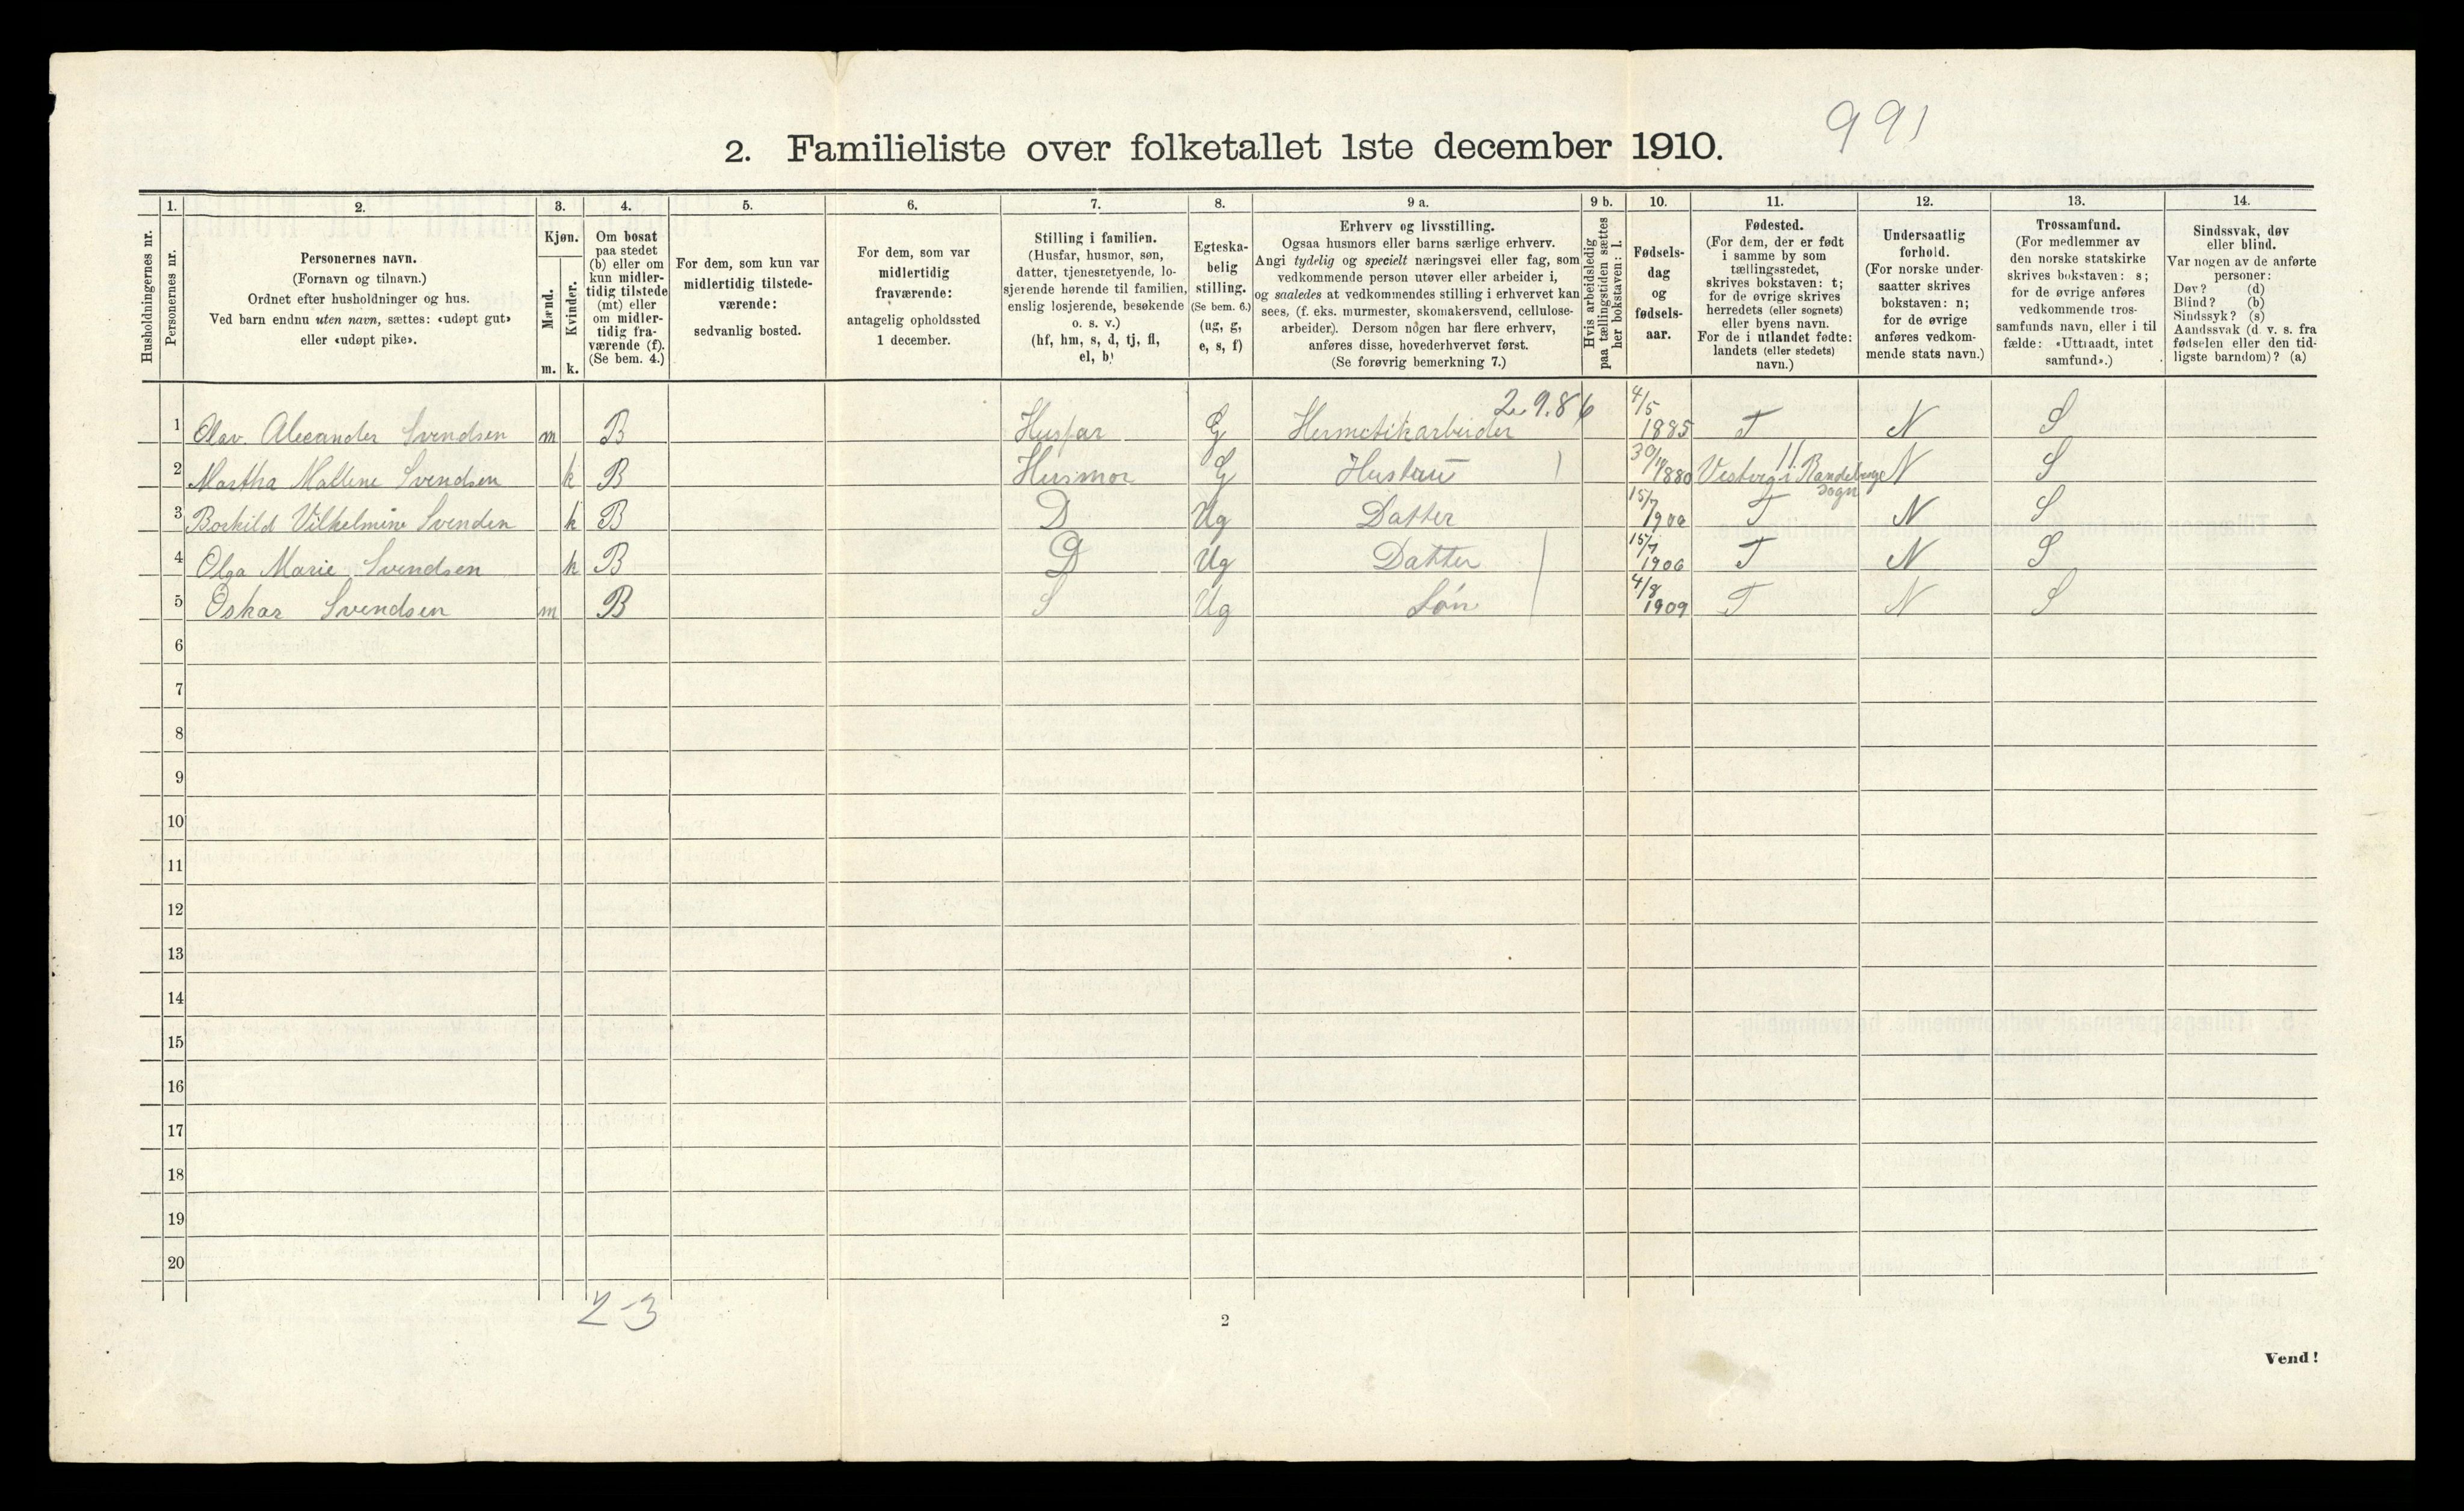 991
2. Familieliste over folketallet 1ste december 1910.
Husholdningernes nr.
1.
Personernes nr.
2.
Personernes navn.
(Fornavn og tilnavn.)
Ordnet efter husholdninger og hus.
Ved barn endnu uten navn, sættes: «udøpt gut»
eller «udøpt pike».
3.
Kjøn.
Mænd.
Kvinder.
m. k.
4.
Om bosat
paa stedet
(b) eller om
kun midler-
tidig tilstede
(mt) eller
om midler-
tidig fra-
værende (f).
(Se bem. 4.)
5.
For dem, som kun var
midlertidig tilstede-
værende:
sedvanlig bosted.
6.
For dem, som var
midlertidig
fraværende:
antagelig opholdssted
1 december.
7.
Stilling i familien.
(Husfar, husmor, søn,
datter, tjenestetyende, lo-
sjerende hørende til familien,
enslig losjerende, besøkende
o. s. v.)
(hf, hm, s, d, tj, fl,
el, b)
8.
Egteska-
belig
stilling.
(Se bem. 6.)
(ug, g,
e, s, f)
9 a.
Erhverv og livsstilling.
Ogsaa husmors eller barns særlige erhverv.
Angi tydelig og specielt næringsvei eller fag, som
vedkommende person utøver eller arbeider i,
og saaledes at vedkommendes stilling i erhvervet kan
sees, (f. eks. murmester, skomakersvend, cellulose-
arbeider). Dersom nogen har flere erhverv,
anføres disse, hovederhvervet først.
(Se forøvrig bemerkning 7.)
9 b.
Hvis arbeidsledig
paa tællingstiden sættes
her bokstaven: l.
10.
Fødsels-
dag
og
fødsels-
aar.
11.
Fødested.
(For dem, der er født
i samme by som
tællingsstedet,
skrives bokstaven: t;
for de øvrige skrives
herredets (eller sognets)
eller byens navn.
For de i utlandet fødte:
landets (eller stedets)
navn.)
12.
Undersaatlig
forhold.
(For norske under-
saatter skrives
bokstaven: n;
for de øvrige
anføres vedkom-
mende stats navn.)
13.
Trossamfund.
(For medlemmer av
den norske statskirke
skrives bokstaven: s;
for de øvrige anføres
vedkommende tros-
samfunds navn, eller i til-
fælde: «Uttraadt, intet
samfund».)
14.
Sindssvak, døv
eller blind.
Var nogen av de anførte
personer:
Døv? (d)
Blind? (b)
Sindssyk? (s)
Aandssvak (d. v. s. fra
fødselen eller den tid-
ligste barndom)? (a)
2.9.86
1 Olav Alexander Svendsen m B Husfar G Hermetikarbeider 4/5 1885 T N S
2 Martha Mallene Svendsen k B Husmor G Hustru 1880 Vestvig i Randeberg sogn N S
3 Borkild Vilhelmine Svenden k B D Ug Datter 15/7 T N S
4 Olga Marie Svendsen k B D Ug Datter 15/7 1906 T N S
5 Oskar Svendsen m B S Ug Søn 4/8 1909 T N S
6
7
8
9
10
11
12
13
14
15
16
17
18
19
20
2-3
2
Vend!